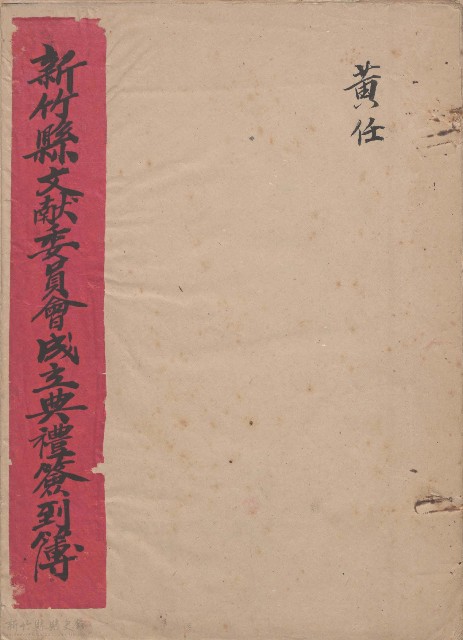 黃任
新竹縣文献委員會成立典禮簽到簿